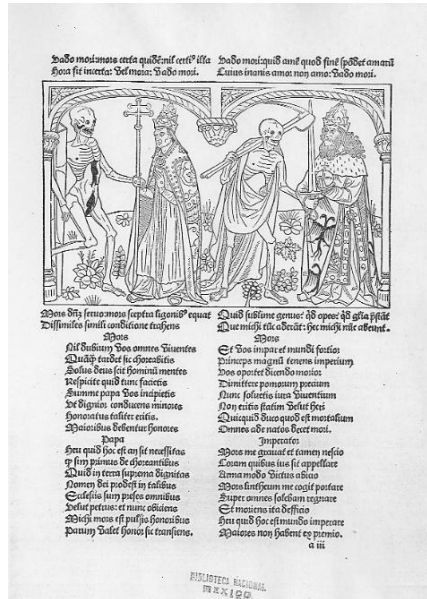 Vado mori: mors certa quidē: nil certiº illa
Hora sit incerta: vel mora: vado mori.
Vado mori: quid amē quod finē spōdet amarū
Cuius inanis amor: non amo: vado mori.
Mors dñz seruo: mors sceptra ligonibꝰ equat
Dissimiles simili conditione trahens
Mors
Nil dubium vos omnes viuentes
Quāqꝫ tardet sic choreabitis
Solus deus scit hominū mentes
Respicite quid tunc facietis
Summe papa vos incipietis
Ut dignior conducens minores
Honoratus taliter eritis.
Maioribus debentur honores
Papa
Heu quid hoc est an sit necessitas
qꝫ sim primus de choreantibus
Quid in terra suprema dignitas
Nomen dei prodest in talibus
Ecclesiis sum preses omnibus
Velut petrus: et nunc obiciens
Michi mors est pulsis honoribus
Parum valet honor sic transiens.
Quid sublime genus: qd opes: qd glia prestāt
Que michi tūc aderāt: hec michi nūc abeunt.
Mors
Et vos impar et mundi fortior
Princeps magnū tenens imperium
Vos oportet dicendo morior
Dimittere pomorum precium
Nunc soluetis iura viuentium
Non eritis statim velut heri
Quicquid duco quod est mortalium
Omnes ade natos decet mori.
Imperator
Mors me grauat et tamen nescio
Coram quibus ius sit appellare
Arma modo victus abicio
Mors lintheum me cogit portare
Super omnes solebam regnare
Et moriens ita defficio
Heu quid hoc est mundo imperare
Maiores non habent ex premio.
a iii
BIBLIOTECA NACIONAL
MEXICO